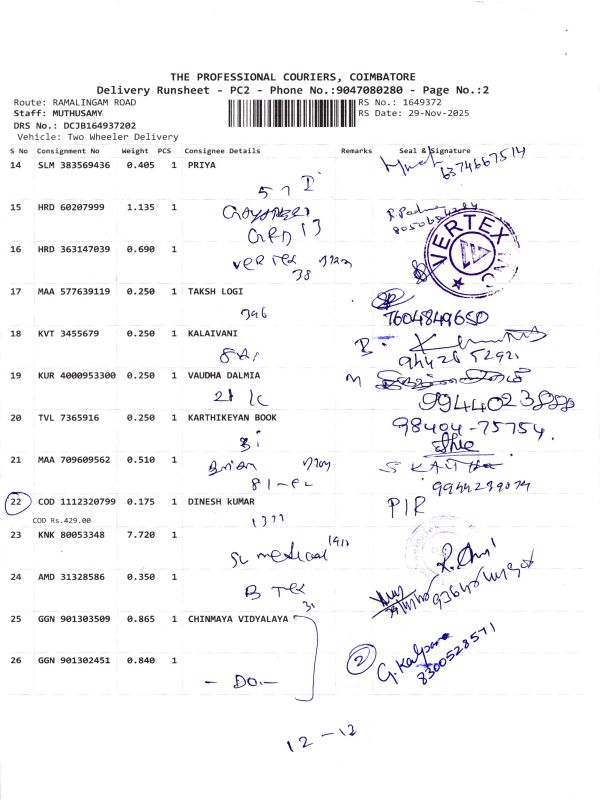 THE PROFESSIONAL COURIERS, COIMBATORE
Delivery Runsheet - PC2 - Phone No.:9047080280 - Page No.:2
Route: RAMALINGAM ROAD
RS No.: 1649372
Staff: MUTHUSAMY
RS Date: 29-Nov-2025
DRS No.: DCJB164937202
Vehicle: Two Wheeler Delivery
S No Consignment No Weight PCS Consignee Details Remarks Seal & Signature
14 SLM 383569436 0.405 1 PRIYA
6374667514
15 HRD 60207999 1.135 1
16 HRD 363147039 0.690 1
VERTEX
38
VERTEX INC
17 MAA 577639119 0.250 1 TAKSH LOGI
396
7604849650
18 KVT 3455679 0.250 1 KALAIVANI
19 KUR 4000953300 0.250 1 VAUDHA DALMIA
20 TVL 7365916 0.250 1 KARTHIKEYAN BOOK
98404-75754
21 MAA 709609562 0.510 1
9944239074
22 COD 1112320799 0.175 1 DINESH kUMAR
PIR
COD Rs.429.00
23 KNK 80053348 7.720 1
SL medical
24 AMD 31328586 0.350 1
B TEX
31
25 GGN 901303509 0.865 1 CHINMAYA VIDYALAYA
26 GGN 901302451 0.840 1
2
G. Kalpana
8300528571
- DO. -
12 - 12